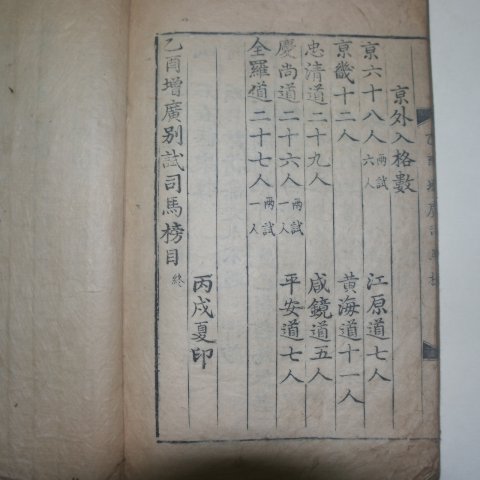 京外入格數
京六十八人 兩試六人 江原道七人
京畿十二人 黃海道十一人
忠清道二十九人 咸鏡道五人
慶尚道二十六人 兩試一人 平安道七人
全羅道二十七人 兩試一人
丙戌夏印
乙酉增廣別試司馬榜目 終